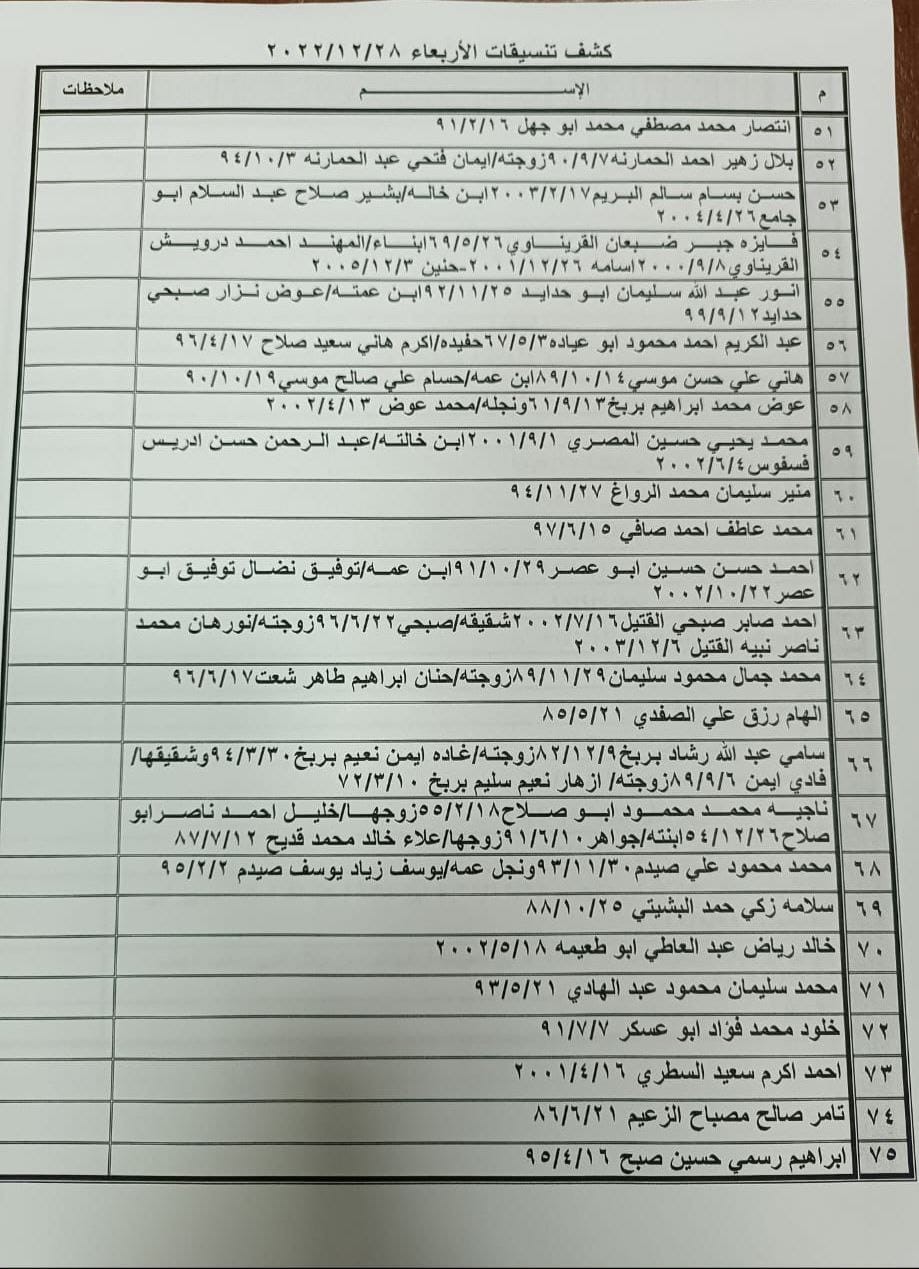 كشف تنسيقات الأربعاء ٢٠٢٢/١٢/٢٨
م الإســـــــــم ملاحظات
٥١ انتصار محمد مصطفي محمد ابو جهل ٩١/٢/١٦
٥٢ بلال زهير احمد الحمارنه٩٠/٩/٧زوجته/ايمان فتحي عبد الحمارنه ٩٤/١٠/٣
٥٣ حسن بسام سالم البريم٢٠٠٣/٢/١٧ابن خاله/بشير صلاح عبد السلام ابو
جامع٢٠٠٤/٤/٢٦
٥٤ فايزه جبر ضبعان القريناوي٦٩/٥/٢٦ابناء/المهند احمد درويش
القريناوي٢٠٠٠/٩/٨اسامه ٢٠٠١/١٢/٢٦-حنين ٢٠٠٥/١٢/٣
٥٥ انور عبد الله سليمان ابو حدايد ٩٢/١١/٢٥ابن عمته/عوض نزار صبحي
حدايد٩٩/٩/١٢
٥٦ عبد الكريم احمد محمود ابو عياده٦٧/٥/٣حفيده/اكرم هاني سعيد صلاح ٩٦/٤/١٧
٥٧ هاني علي حسن موسي٨٩/١٠/١٤ابن عمه/حسام علي صالح موسي٩٠/١٠/١٩
٥٨ عوض محمد ابراهيم بربخ٦١/٩/١٣ونجله/محمد عوض ٢٠٠٢/٤/١٣
٥٩ محمد يحيي حسين المصري ٢٠٠١/٩/١ابن خالته/عبد الرحمن حسن ادريس
فسفوس٢٠٠٢/٦/٤
٦٠ منير سليمان محمد الرواغ ٩٤/١١/٢٧
٦١ محمد عاطف احمد صافي ٩٧/٦/١٥
٦٢ احمد حسن حسين ابو عصر٩١/١٠/٢٩ابن عمه/توفيق نضال توفيق ابو
عصر٢٠٠٢/١٠/٢٢
٦٣ احمد صابر صبحي القتيل٢٠٠٢/٧/١٦شقيقه/صبحي٩٦/٦/٢٢زوجته/نورهان محمد
ناصر نبيه القتيل ٢٠٠٣/١٢/٦
٦٤ محمد جمال محمود سليمان٨٩/١١/٢٩زوجته/حنان ابراهيم طاهر شعت٩٦/٦/١٧
٦٥ الهام رزق علي الصفدي ٨٥/٥/٢١
٦٦ سامي عبد الله رشاد بربخ٨٢/١٢/٩زوجته/غاده ايمن نعيم بربخ٩٤/٣/٣٠وشقيقها/
فادي ايمن ٨٩/٩/٦زوجته/ ازهار نعيم سليم بربخ ٧٢/٣/١٠
٦٧ ناجيه محمد محمود ابو صلاح٥٥/٢/١٨زوجها/خليل احمد ناصر ابو
صلاح٥٤/١٢/٢٦ابنته/جواهر٩١/٦/١٠زوجها/علاء خالد محمد قديح ٨٧/٧/١٢
٦٨ محمد محمود علي صيدم٩٣/١١/٣٠ونجل عمه/يوسف زياد يوسف صيدم ٩٥/٢/٢
٦٩ سلامه زكي حمد البشيتي ٨٨/١٠/٢٥
٧٠ خالد رياض عبد العاطي ابو طعيمه ٢٠٠٢/٥/١٨
٧١ محمد سليمان محمود عبد الهادي ٩٣/٥/٢١
٧٢ خلود محمد فؤاد ابو عسكر ٩١/٧/٧
٧٣ احمد اكرم سعيد السطري ٢٠٠١/٤/١٦
٧٤ تامر صالح مصباح الزعيم ٨٦/٦/٢١
٧٥ ابراهيم رسمي حسين صبح ٩٥/٤/١٦